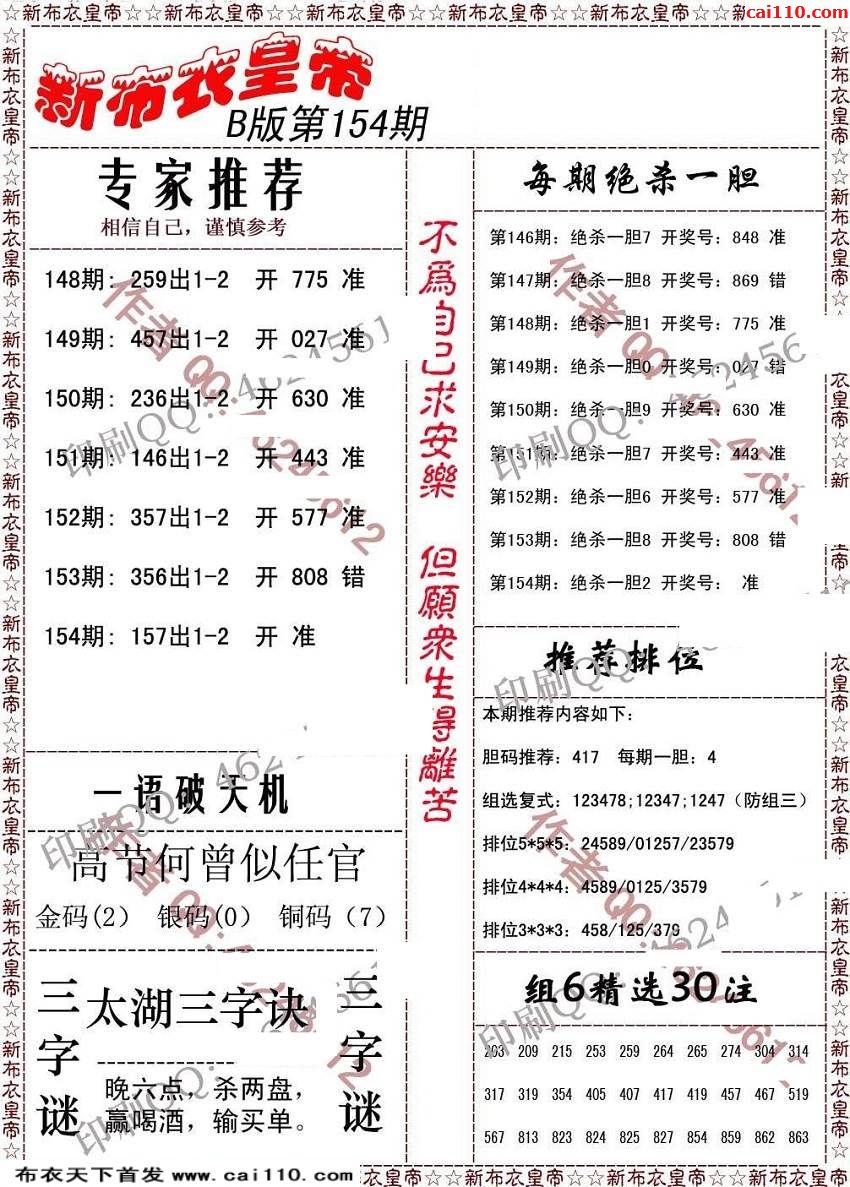 ☆☆新布衣皇帝☆☆新布衣皇帝☆☆新布衣皇帝☆☆新布衣皇帝☆☆新布衣皇帝☆☆新
cai110.com
新布衣皇帝
B版第154期
专家推荐
相信自己，谨慎参考
148期: 259出1-2 开 775 准
149期: 457出1-2 开 027 准
150期: 236出1-2 开 630 准
151期: 146出1-2 开 443 准
152期: 357出1-2 开 577 准
153期: 356出1-2 开 808 错
154期: 157出1-2 开 准
一语破天机
高节何曾似任官
金码(2) 银码(0) 铜码（7）
三字谜
太湖三字诀
晚六点，杀两盘，
赢喝酒，输买单。
三字谜
不為自己求安樂 但願衆生得離苦
每期绝杀一胆
第146期: 绝杀一胆7 开奖号: 848 准
第147期: 绝杀一胆8 开奖号: 869 错
第148期: 绝杀一胆1 开奖号: 775 准
第149期: 绝杀一胆0 开奖号: 027 错
第150期: 绝杀一胆9 开奖号: 630 准
第151期: 绝杀一胆7 开奖号: 443 准
第152期: 绝杀一胆6 开奖号: 577 准
第153期: 绝杀一胆8 开奖号: 808 错
第154期: 绝杀一胆2 开奖号: 准
推荐排位
本期推荐内容如下:
胆码推荐: 417 每期一胆: 4
组选复式: 123478;12347;1247（防组三）
排位5*5*5: 24589/01257/23579
排位4*4*4: 4589/0125/3579
排位3*3*3: 458/125/379
组6精选30注
203 209 215 253 259 264 265 274 304 314
317 319 354 405 407 417 419 457 467 519
567 813 823 824 825 827 854 859 862 863
布衣天下首发 www.cai110.com
衣皇帝☆☆新布衣皇帝☆☆新布衣皇帝☆☆新布衣皇帝☆☆